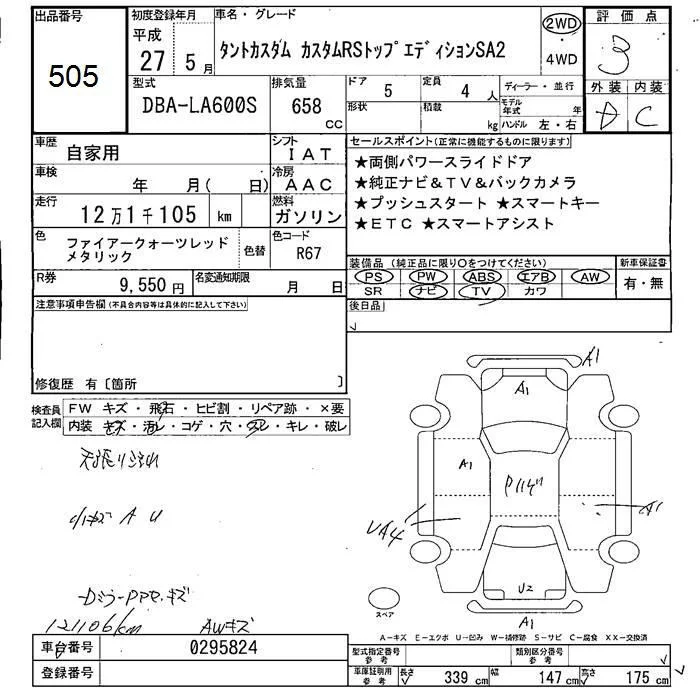 出品番号
505
初度登録年月
平成
27 5 月
車名・グレード
タントカスタム カスタムRSトップエディションSA2
2WD
・
4WD
評価点
3
外装 内装
D C
型式
DBA-LA600S
排気量
658
CC
ドア 5
定員 4 人
形状
積載 kg
ディーラー・並行
モデル年式 年
ハンドル 左・右
車歴
自家用
シフト
IAT
車検
年 月( 日)
冷房
AAC
走行
12万1千105 km
燃料
ガソリン
色
ファイアークォーツレッド
メタリック
色替
色コード
R67
R券
9,550 円
名変通知期限
月 日
セールスポイント(正常に機能するものに限ります)
★両側パワースライドドア
★純正ナビ&TV&バックカメラ
★プッシュスタート ★スマートキー
★ETC ★スマートアシスト
装備品(純正品に限り○をつけてください)
PS PW ABS エアB AW
SR ナビ TV カワ
新車保証書
有・無
後日品
注意事項申告欄(不具合内容等は具体的に記入して下さい)
修復歴 有〔箇所 〕
検査員
記入欄
FW キズ・飛石・ヒビ割・リペア跡・×要
内装 キズ・汚レ・コゲ・穴・スレ・キレ・破レ
天張り汚れ
小キズ A U
121106km
AWキズ
A1
A1
A1
UA4
A1
U2
A1
スペア
A-キズ E-エクボ U-凹み W-補修跡 S-サビ C-腐食 XX-交換済
車台番号
0295824
登録番号
型式指定番号
参考
類別区分番号
参考
車庫証明用
参考
長さ 339 cm
幅 147 cm
高さ 175 cm